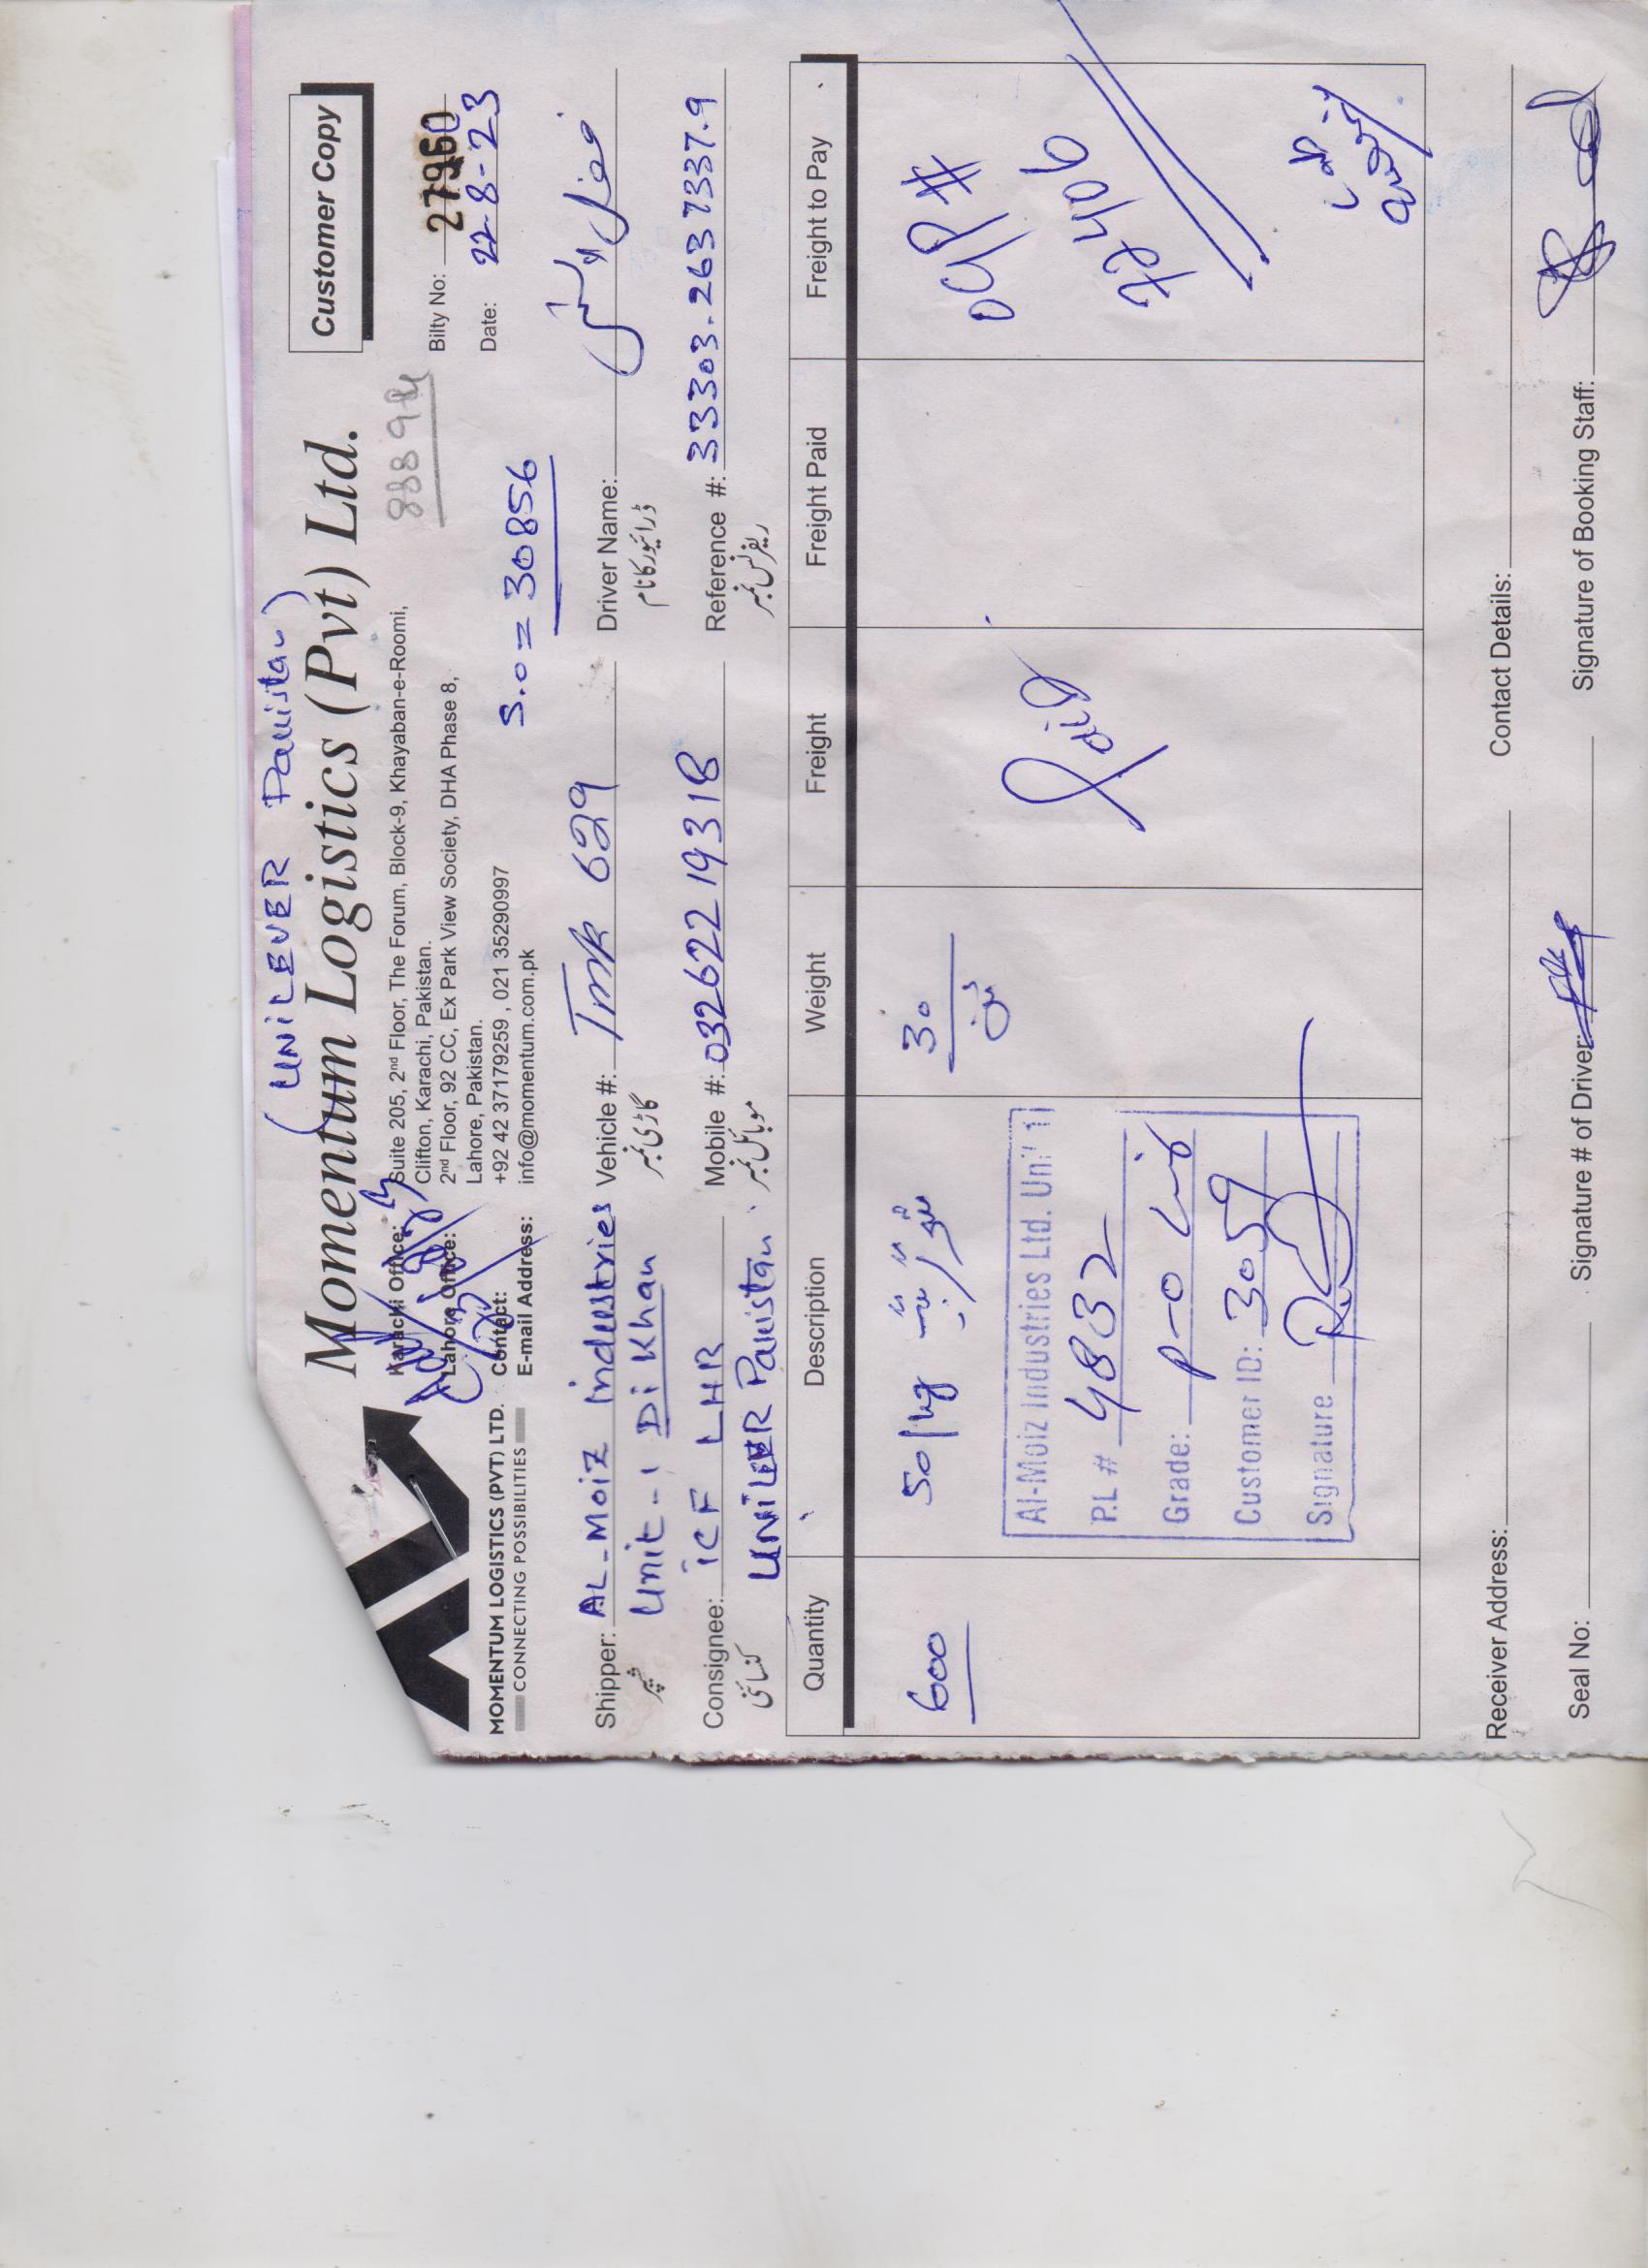 (UNILEVER Pakistan)
Momentum Logistics (Pvt) Ltd.
Customer Copy
MOMENTUM LOGISTICS (PVT) LTD.
CONNECTING POSSIBILITIES
Karachi Office: Suite 205, 2nd Floor, The Forum, Block-9, Khayaban-e-Roomi,
Clifton, Karachi, Pakistan.
Lahore Office: 2nd Floor, 92 CC, Ex Park View Society, DHA Phase 8,
Lahore, Pakistan.
Contact: +92 42 37179259 , 021 35290997
E-mail Address: info@momentum.com.pk
Bilty No: 27960
Date: 22-8-23
S.O = 30856
Shipper: AL-Moiz Industries
شپر
Unit-1 Di Khan
Vehicle #: TMK 629
گاڑی نمبر
Driver Name:
ڈرائیور کا نام
Consignee: ICF LHR
کنسائنی
UNILEVER Pakistan
Mobile #: 03262219318
موبائل نمبر
Reference #: 33303.2637337.9
ریفرنس نمبر
Quantity Description Weight Freight Freight Paid Freight to Pay
600
50/kg
30
ٹن
Paid
OGP #
72406
Al-Moiz Industries Ltd. Unit 1
P.L # 4832
Grade: P-0
Customer ID: 3059
Signature
Receiver Address: Contact Details:
Seal No: Signature # of Driver: Signature of Booking Staff: